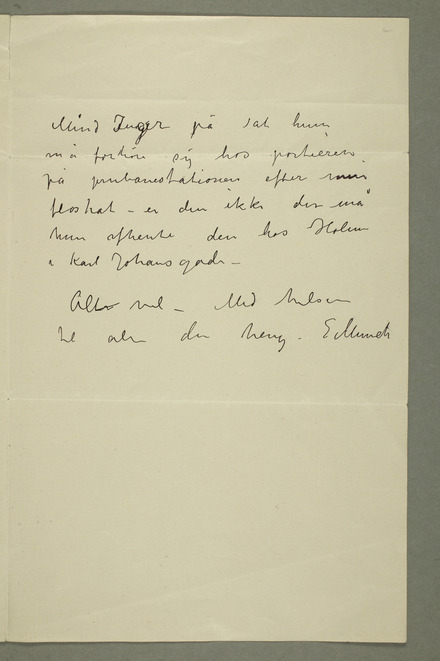 Mind Inger på at hun
må forhøre sig hos portieren
på jernbanestationen efter min
floshat – er den ikke der må
hun afhente den hos Holm
i Karl Johansgade –
Alt vel – Med hilsen
til alle din heng. E Munch